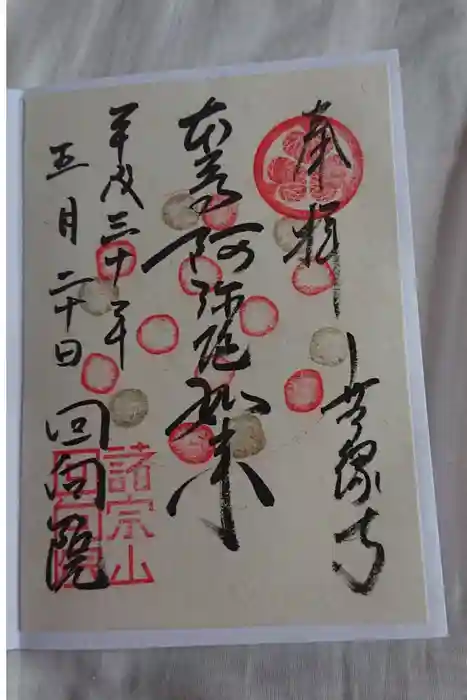 奉拝 無縁寺
本尊 阿弥陀如来
平成三十年
五月二十日
回向院
諸宗山
回向院